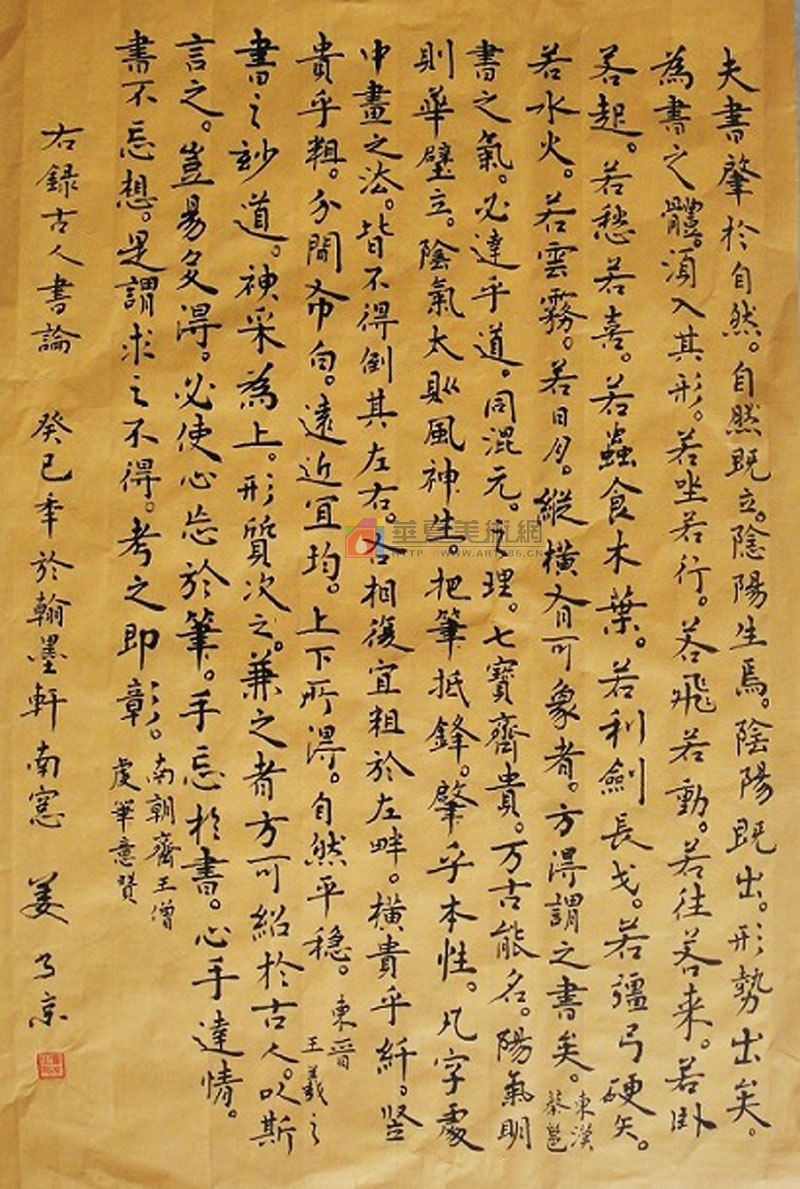 夫書肇於自然。自然既立。陰陽生焉。陰陽既出。形勢出矣。
為書之體。須入其形。若坐若行。若飛若動。若往若来。若卧
若起。若愁若喜。若蟲食木葉。若利劍長戈。若彊弓硬矢。
若水火。若雲霧。若日月。縱橫有可象者。方得謂之書矣。東漢
蔡邕
書之氣。必達乎道。同混元。之理。七寶齊貴。万古能名。陽氣明
則華壁立。陰氣太則風神生。把筆抵鋒。肇乎本性。凡字處
中畫之法。皆不得倒其左右。右相復宜粗於左畔。橫貴乎纖。竖
貴乎粗。分間布白。遠近宜均。上下所得。自然平穩。東晋
王羲之
書之妙道。神采為上。形質次之。兼之者方可紹於古人。以斯
言之。豈易多得。必使心忘於筆。手忘於書。心手達情。
書不忘想。是謂求之不得。考之即彰。南朝齋王僧
虔筆意贊
右録古人書論 癸巳年於翰墨軒南窓 姜乃京
華夏美術網
HTTP://WWW.ART86.CN